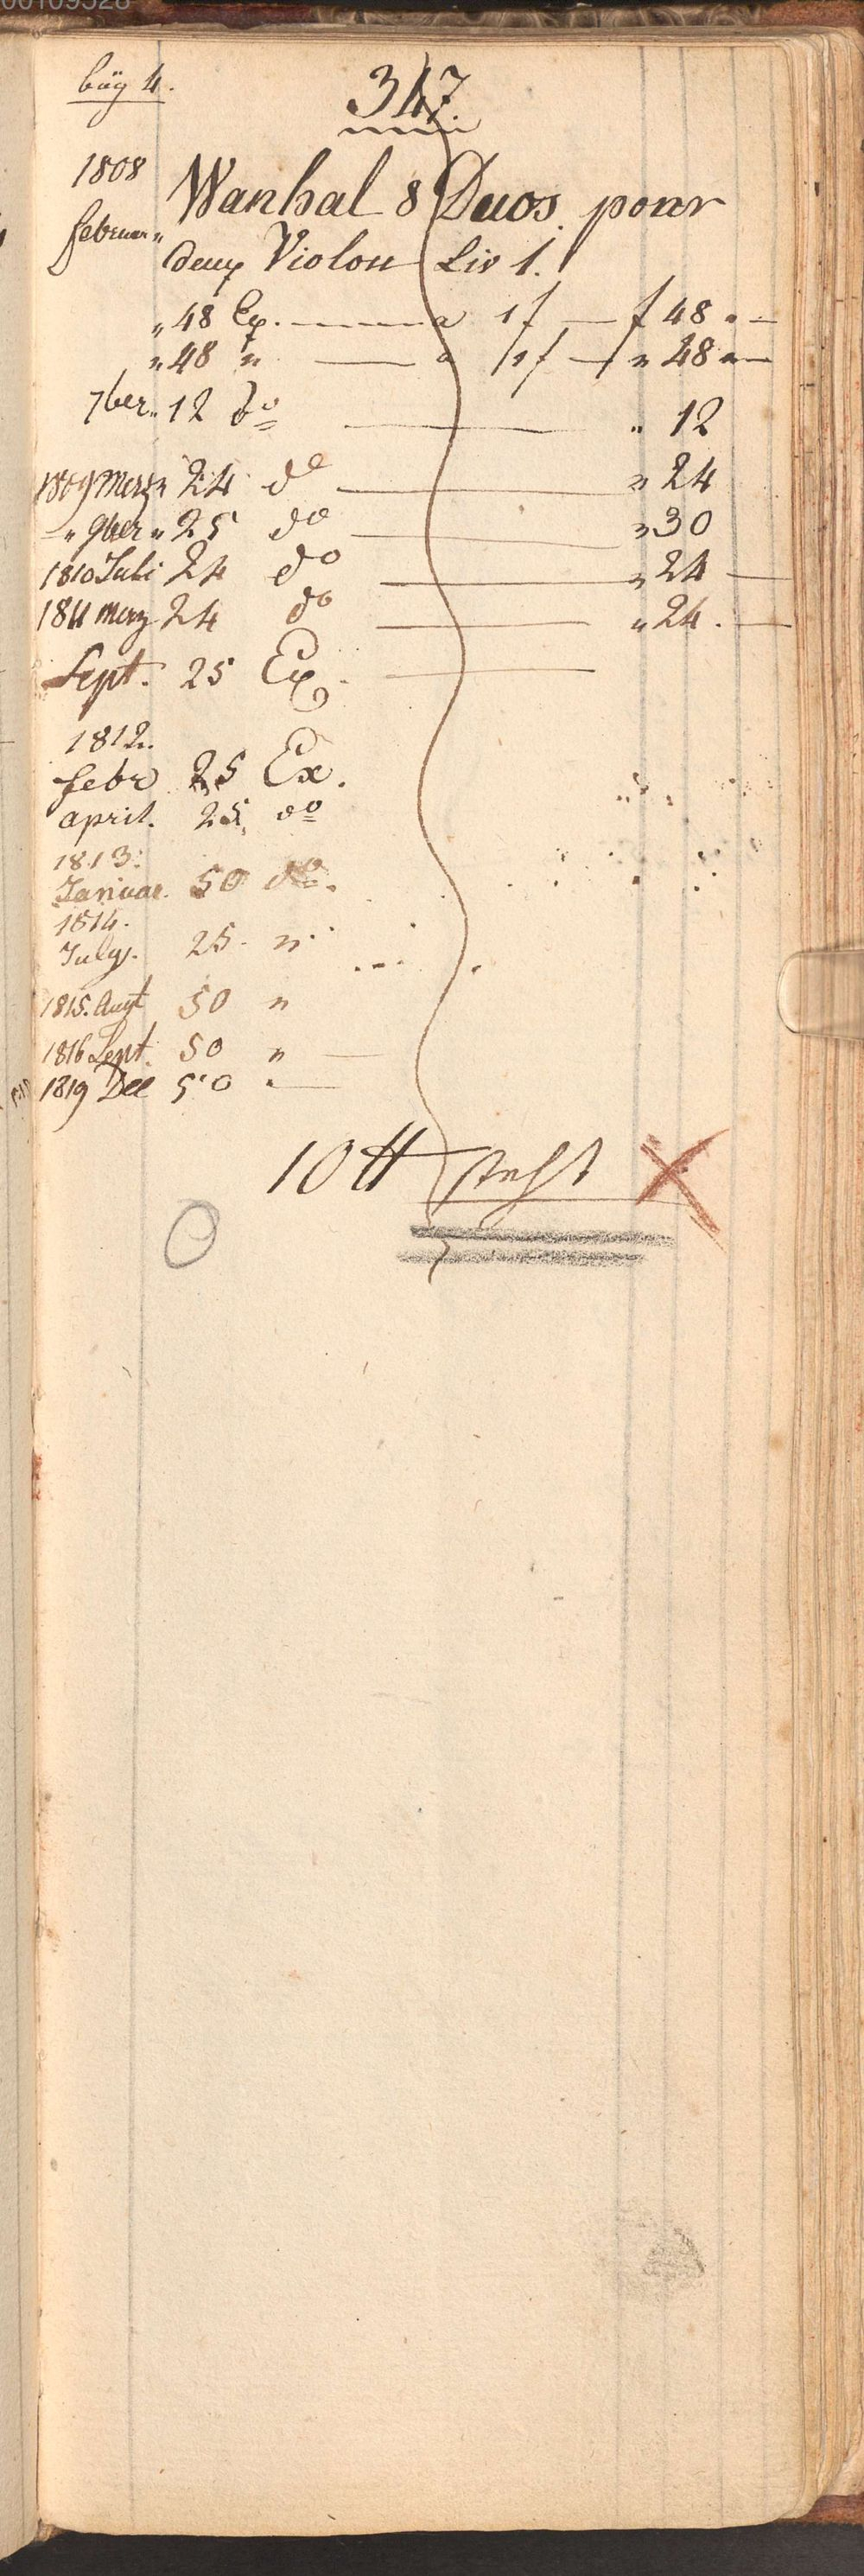 büg 4.
347.
1808 Wanhal 8 Duos pour
februar „ deux Violon Liv 1.
„ 48 Ex. a 1f f 48 „ —
„ 48 „ a 1f „ 48 „ —
7ber „ 12 do „ 12
1809 Merz „ 24 do „ 24
„ 9ber „ 25 do „ 30
1810 Juli 24 do „ 24 —
1811 Merz 24 do „ 24. —
Sept. 25 Ex.
1812.
febr 25 Ex.
april. 25 do
1813.
Januar. 50 do.
1814.
July. 25 „
1815. Augt 50 „
1816 Sept. 50 „
1819 Dec 50 „
10 tt steht